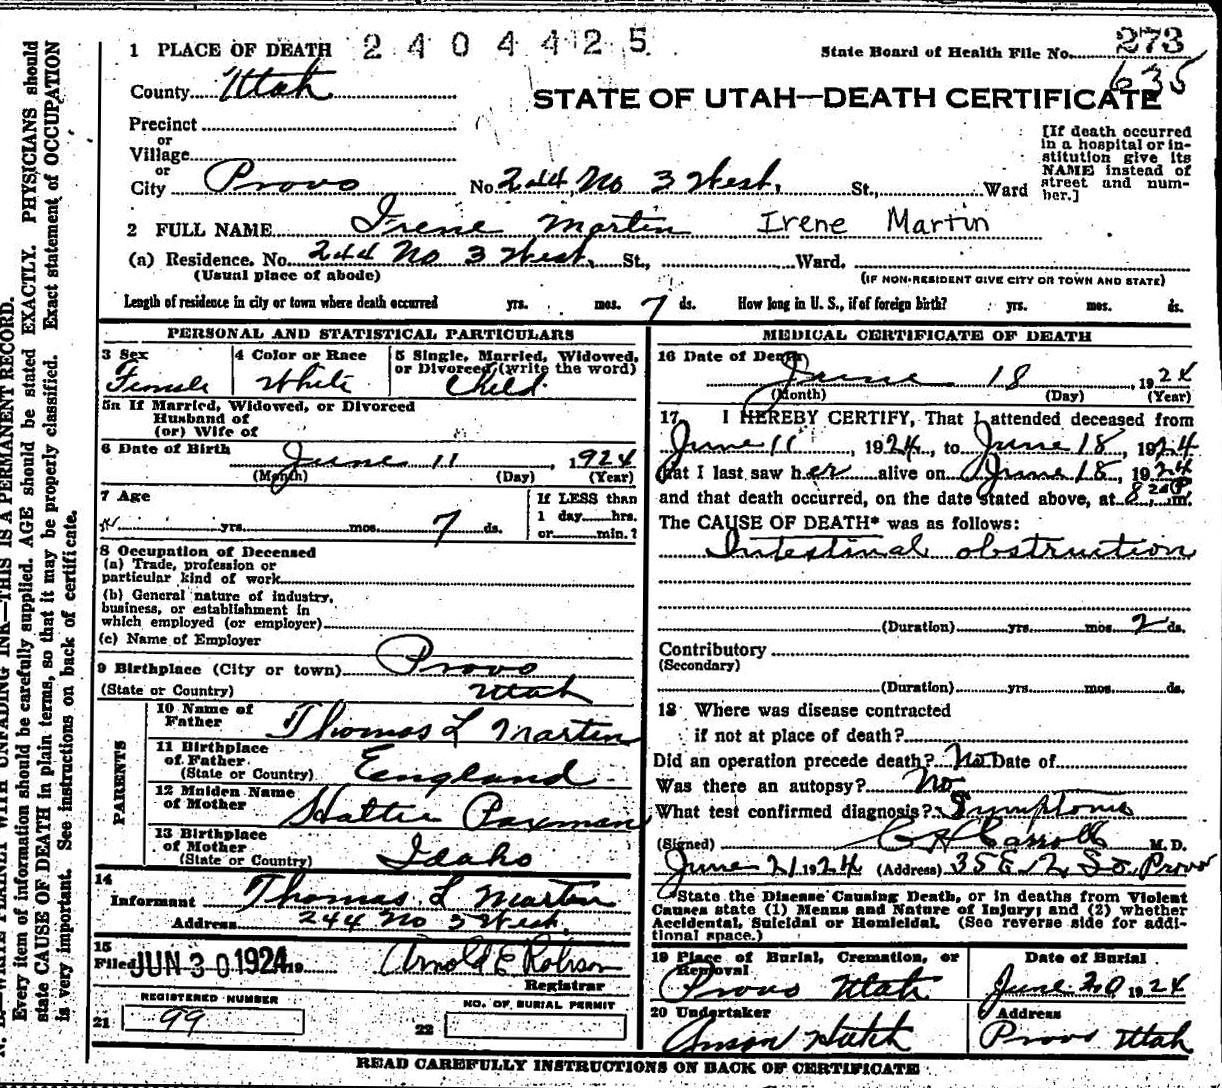 1 PLACE OF DEATH 2404425
State Board of Health File No. 273
635
County Utah
STATE OF UTAH—DEATH CERTIFICATE
Precinct
or
Village
or
City Provo No 244 No 3 West, St., Ward
[If death occurred
in a hospital or in-
stitution give its
NAME instead of
street and num-
ber.]
2 FULL NAME Irene Martin Irene Martin
(a) Residence. No. 244 No 3 West. St., Ward.
(Usual place of abode) (IF NON-RESIDENT GIVE CITY OR TOWN AND STATE)
Length of residence in city or town where death occurred yrs. mos. 7 ds. How long in U. S., if of foreign birth? yrs. mos. ds.
PERSONAL AND STATISTICAL PARTICULARS
3 Sex 4 Color or Race 5 Single, Married, Widowed,
or Divorced (write the word)
Female White Child
5a If Married, Widowed, or Divorced
Husband of
(or) Wife of
6 Date of Birth
June 11, 1924
(Month) (Day) (Year)
7 Age If LESS than
1 day......hrs.
yrs. mos. 7 ds. or......min.?
8 Occupation of Deceased
(a) Trade, profession or
particular kind of work
(b) General nature of industry,
business, or establishment in
which employed (or employer)
(c) Name of Employer
9 Birthplace (City or town) Provo
(State or Country) Utah
PARENTS
10 Name of
Father Thomas L Martin
11 Birthplace
of Father England
(State or Country)
12 Maiden Name
of Mother Hattie Paxman
13 Birthplace
of Mother
(State or Country) Idaho
14
Informant Thomas L Martin
Address 244 No 3 West.
15
Filed JUN 30 1924 19 Arnold E Robison
Registrar
REGISTERED NUMBER NO. OF BURIAL PERMIT
21 99 22
MEDICAL CERTIFICATE OF DEATH
16 Date of Death
June 18, 1924
(Month) (Day) (Year)
17 I HEREBY CERTIFY, That I attended deceased from
June 11, 1924, to June 18, 1924
that I last saw her alive on June 18, 1924
and that death occurred, on the date stated above, at 8 20 P m.
The CAUSE OF DEATH* was as follows:
Intestinal obstruction
(Duration) yrs. mos 2 ds.
Contributory
(Secondary)
(Duration) yrs. mos. ds.
18 Where was disease contracted
if not at place of death?
Did an operation precede death? No Date of
Was there an autopsy? No
What test confirmed diagnosis? Symptoms
(Signed) Carroll M. D.
June 21 1924 (Address) 35 E 12 So. Provo
*State the Disease Causing Death, or in deaths from Violent
Causes state (1) Means and Nature of Injury; and (2) whether
Accidental, Suicidal or Homicidal. (See reverse side for addi-
tional space.)
19 Place of Burial, Cremation, or
Removal Date of Burial
Provo Utah June 20 1924
20 Undertaker Address
Anson Hatch Provo Utah
READ CAREFULLY INSTRUCTIONS ON BACK OF CERTIFICATE
WRITE PLAINLY WITH UNFADING INK—THIS IS A PERMANENT RECORD.
Every item of information should be carefully supplied. AGE should be stated EXACTLY. PHYSICIANS should
state CAUSE OF DEATH in plain terms, so that it may be properly classified. Exact statement of OCCUPATION
is very important. See instructions on back of certificate.